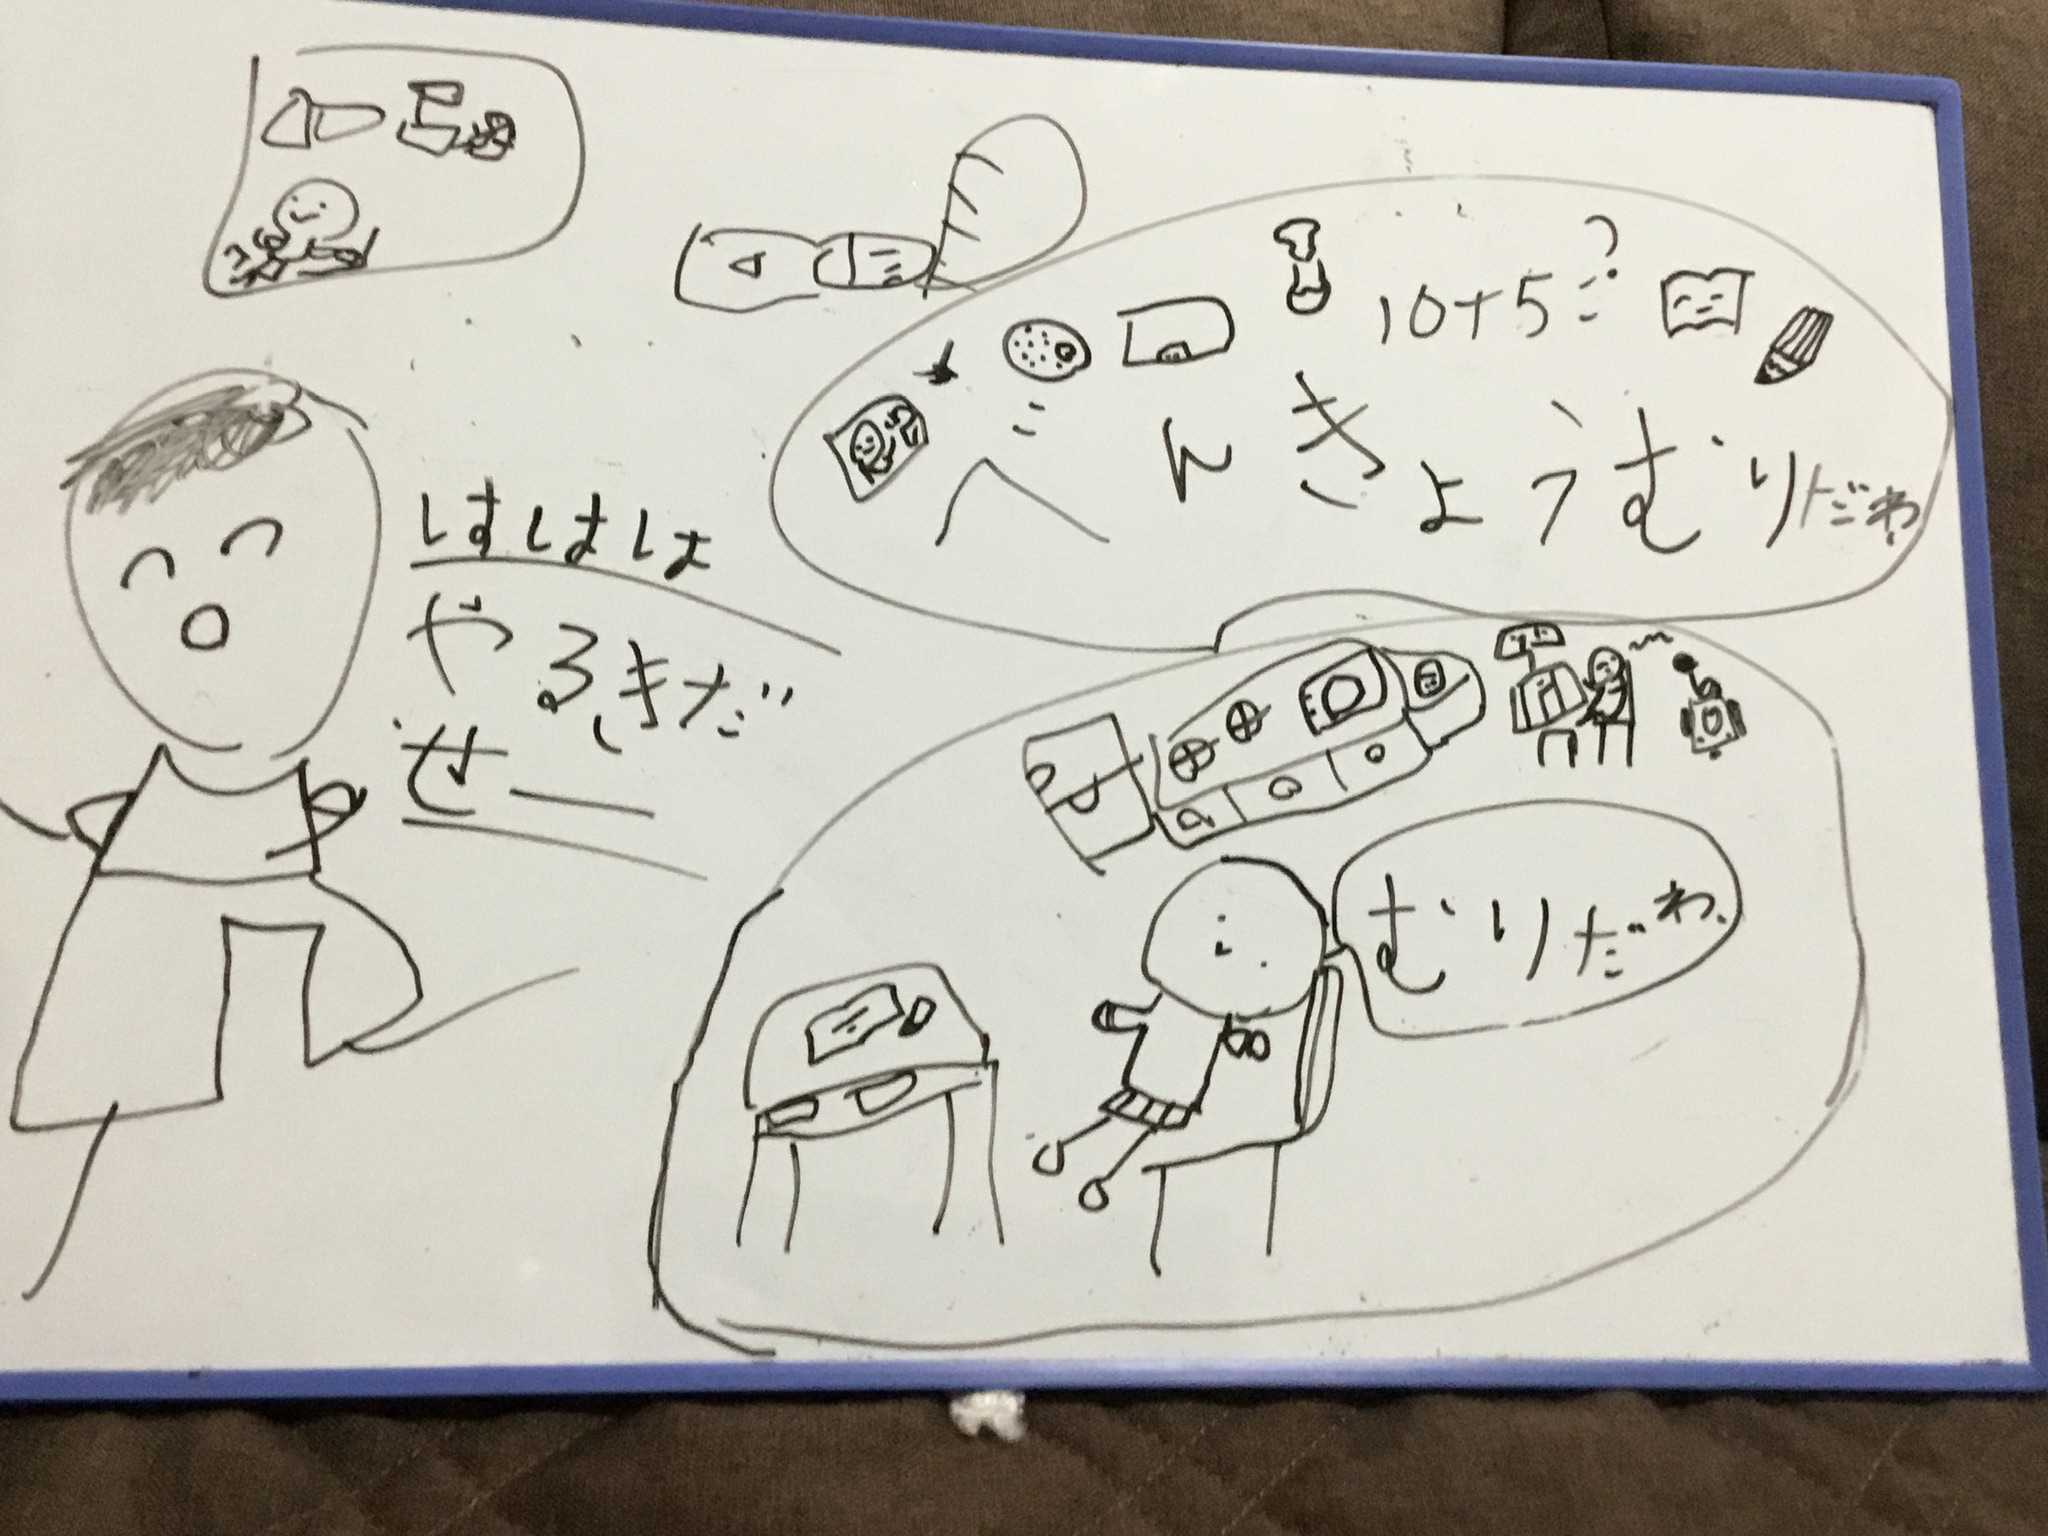 はよはよはよ
やるきだ
せー
10+5=?
べんきょうむりだわ
むりだわ